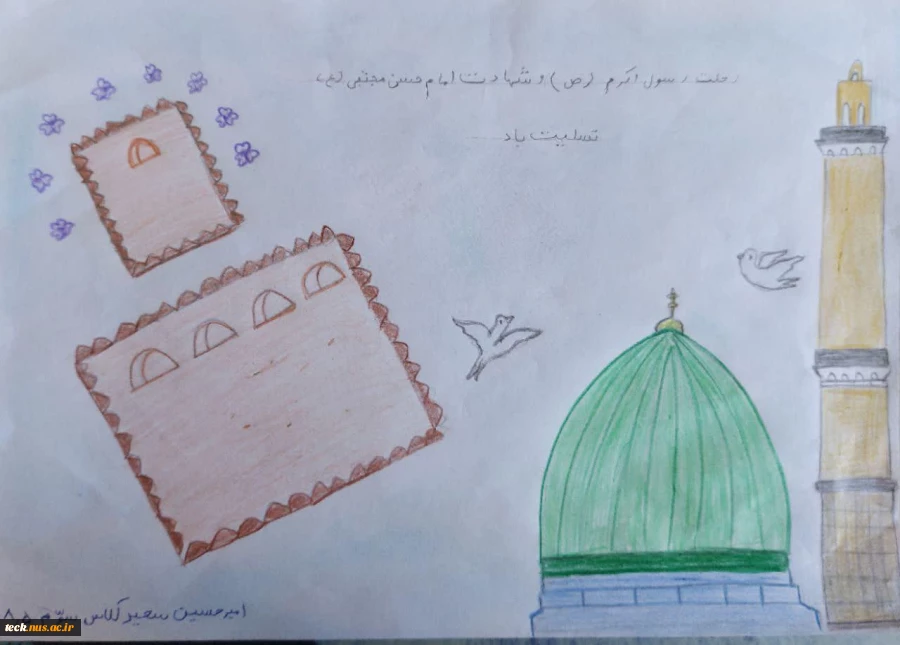 رحلت رسول اکرم (ص) و شهادت امام حسن مجتبی (ع)
تسلیت باد
امیرحسین سعید کلاس سوم
teck.nus.ac.ir